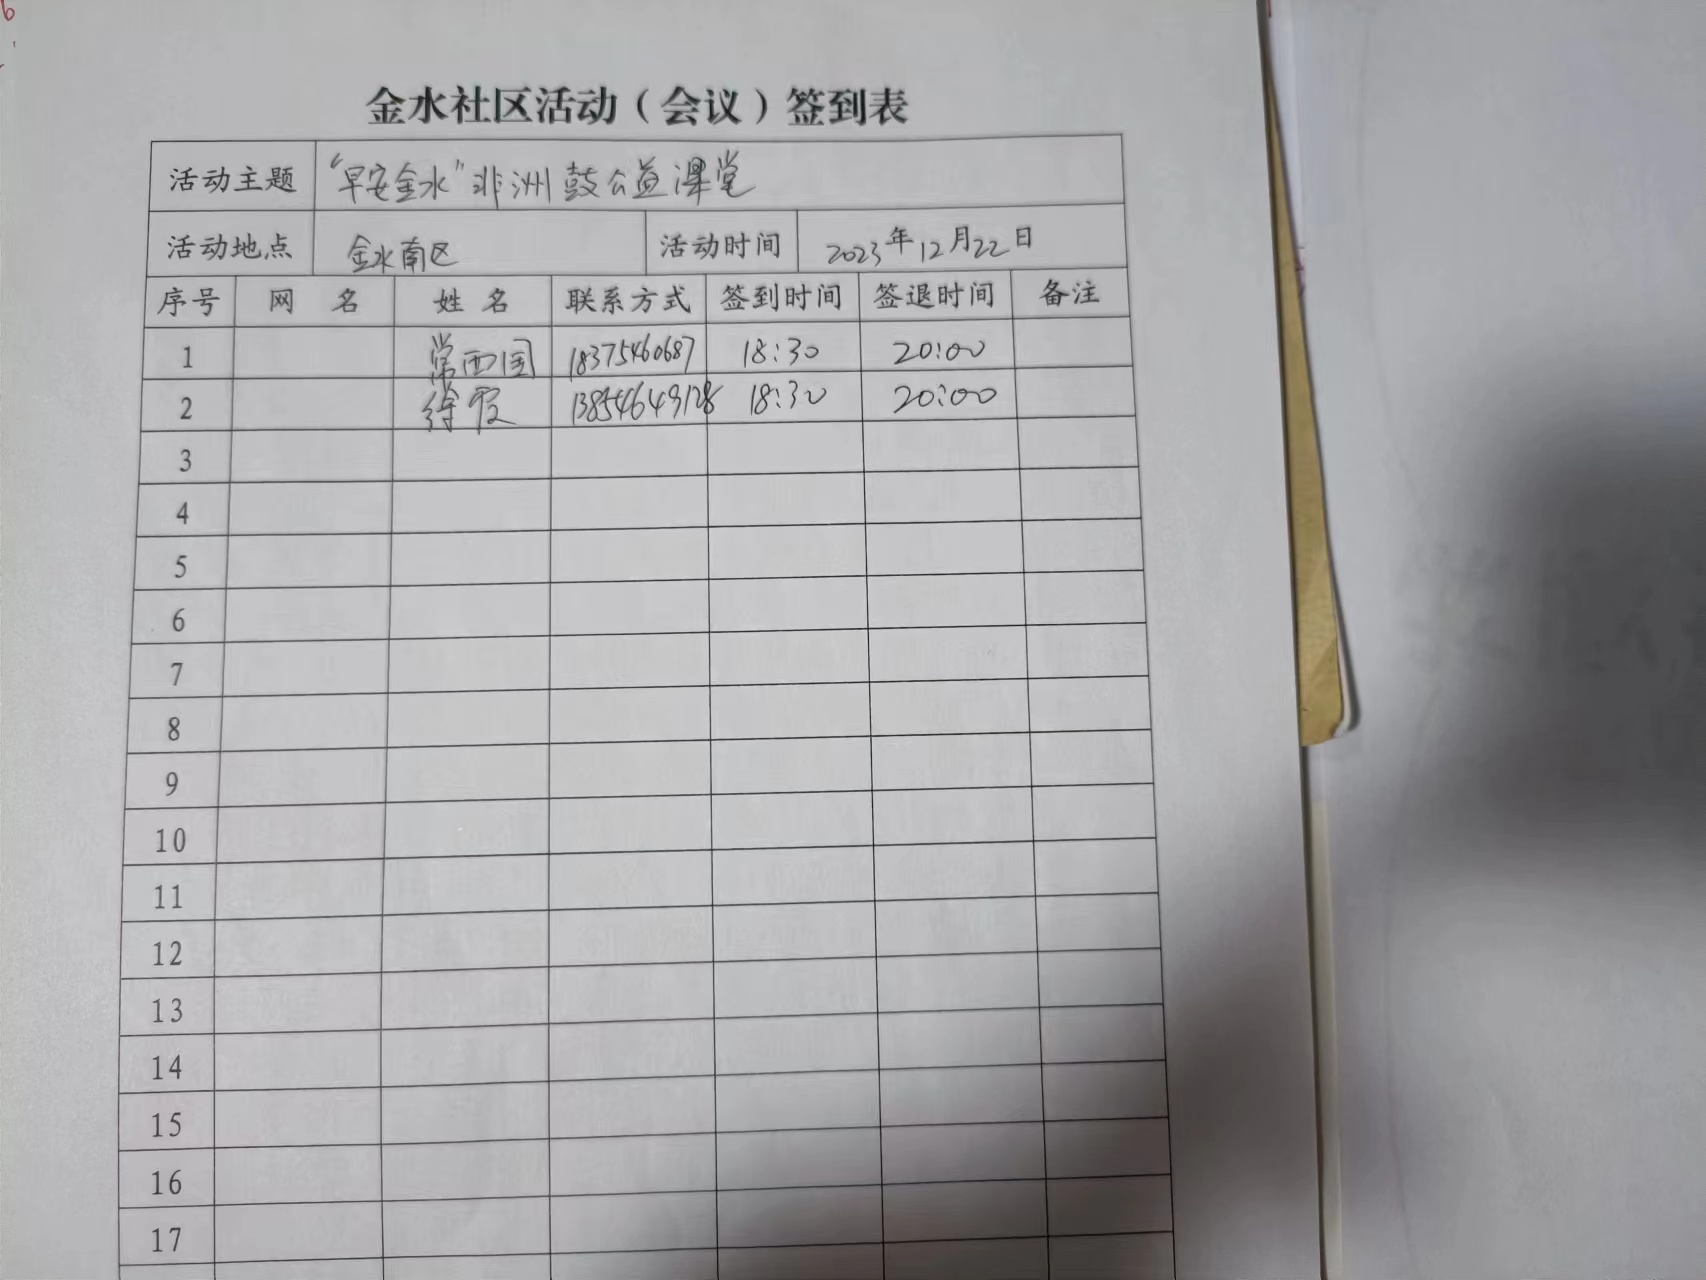 金水社区活动（会议）签到表
活动主题 “早安金水”非洲鼓公益课堂
活动地点 金水南区 活动时间 2023年12月22日
序号 网 名 姓 名 联系方式 签到时间 签退时间 备注
1 常西国 18375460687 18:30 20:00
2 徐霞 13854649128 18:30 20:00
3
4
5
6
7
8
9
10
11
12
13
14
15
16
17